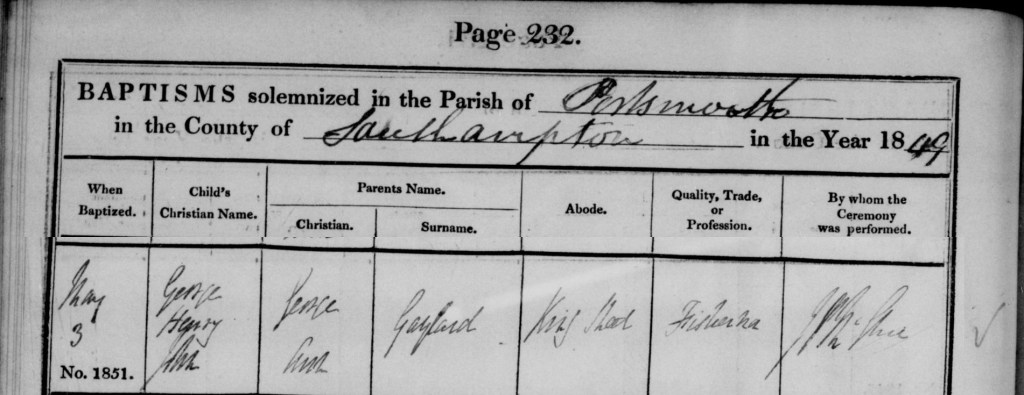 Page 232.
BAPTISMS solemnized in the Parish of Portsmouth
in the County of Southampton in the Year 1849
When Baptized.
Child's Christian Name.
Parents Name.
Christian.
Surname.
Abode.
Quality, Trade, or Profession.
By whom the Ceremony was performed.
May
3
No. 1851.
George
Henry
George
Ann
Gaylard
King Street